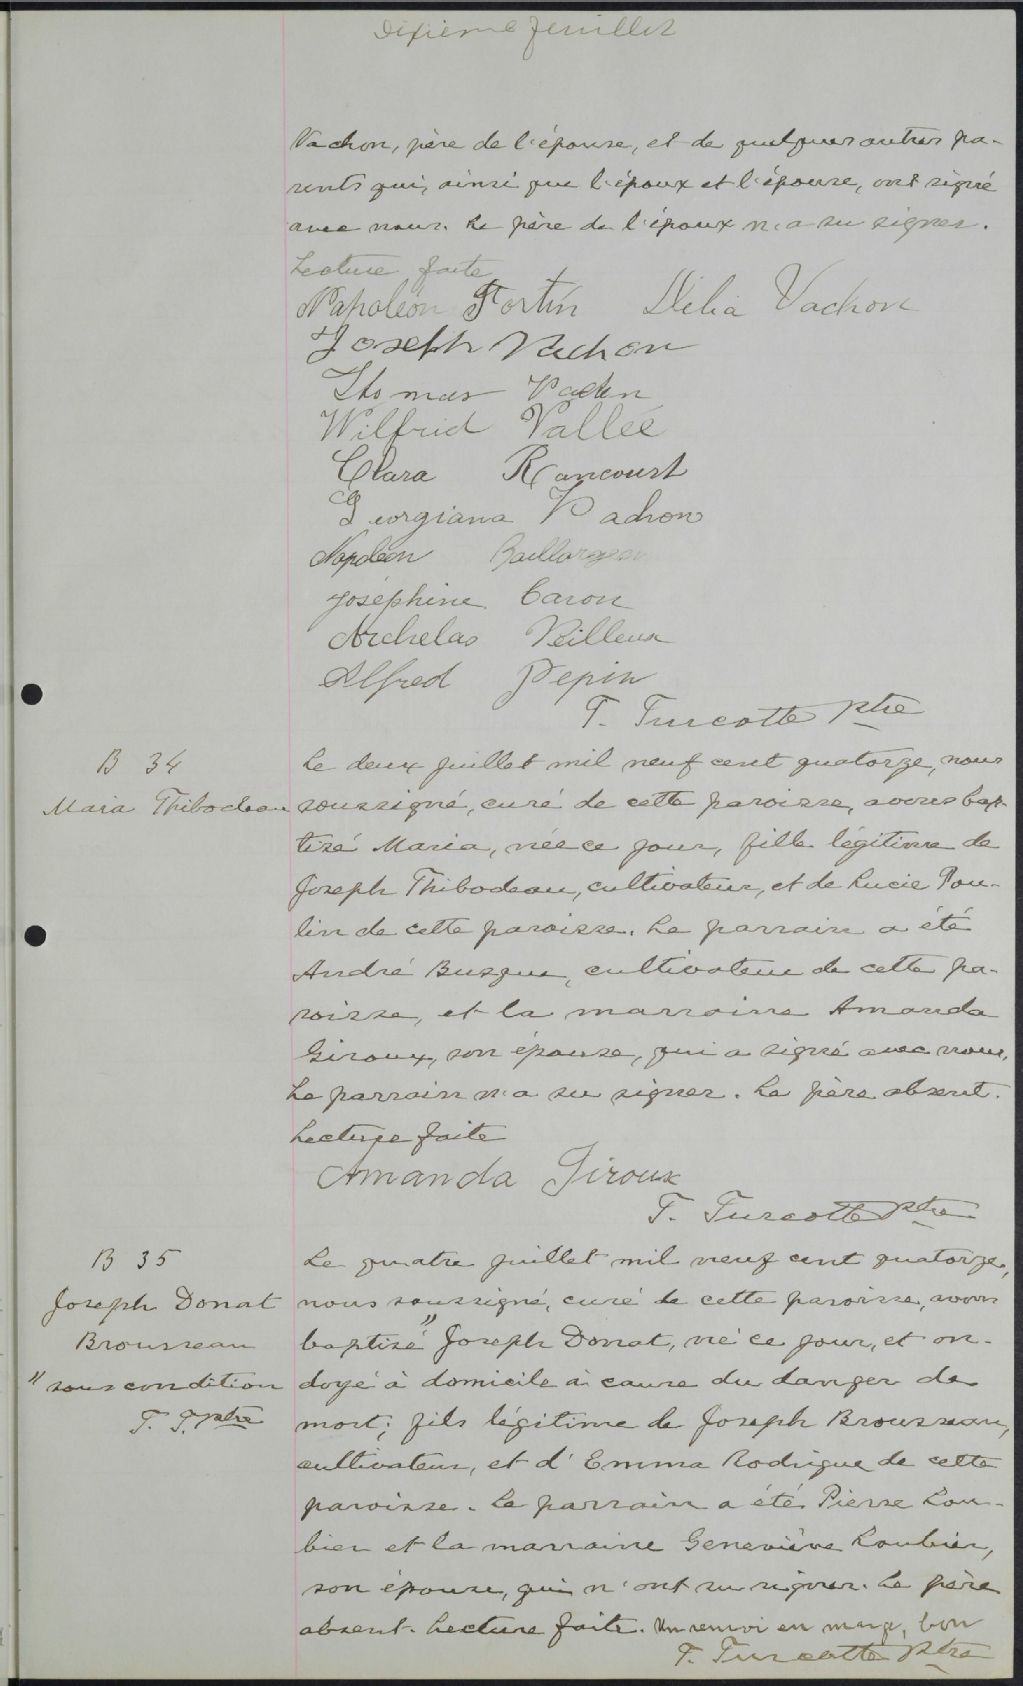 Dixième feuillet
Vachon, père de l'épouse, et de quelques autres pa-
rents qui, ainsi que l'époux et l'épouse, ont signé
avec nous. Le père de l'époux n'a su signer.
Lecture faite
Napoléon Fortin Délia Vachon
Joseph Vachon
Thomas Vachon
Wilfrid Vallée
Clara Rancourt
Georgiana Vachon
Napoléon Baillargeon
Joséphine Caron
Archelas Veilleux
Alfred Pepin
T. Turcotte ptre
B 34
Maria Thibodeau
Le deux juillet mil neuf cent quatorze, nous
soussigné, curé de cette paroisse, avons bap-
tisé Maria, née ce jour, fille légitime de
Joseph Thibodeau, cultivateur, et de Lucie Pou-
lin de cette paroisse. Le parrain a été
André Busque, cultivateur de cette pa-
roisse, et la marraine Amanda
Giroux, son épouse, qui a signé avec nous.
Le parrain n'a su signer. Le père absent.
Lecture faite
Amanda Giroux
T. Turcotte ptre
B 35
Joseph Donat
Brousseau
" sous condition
T. T. ptre
Le quatre juillet mil neuf cent quatorze,
nous soussigné, curé de cette paroisse, avons
baptisé " Joseph Donat, né ce jour, et on-
doyé à domicile à cause du danger de
mort; fils légitime de Joseph Brousseau,
cultivateur, et d'Emma Rodrigue de cette
paroisse. Le parrain a été Pierre Lou-
bier et la marraine Geneviève Loubier,
son épouse, qui n'ont su signer. Le père
absent. Lecture faite. Un renvoi en marge, bon
T. Turcotte ptre